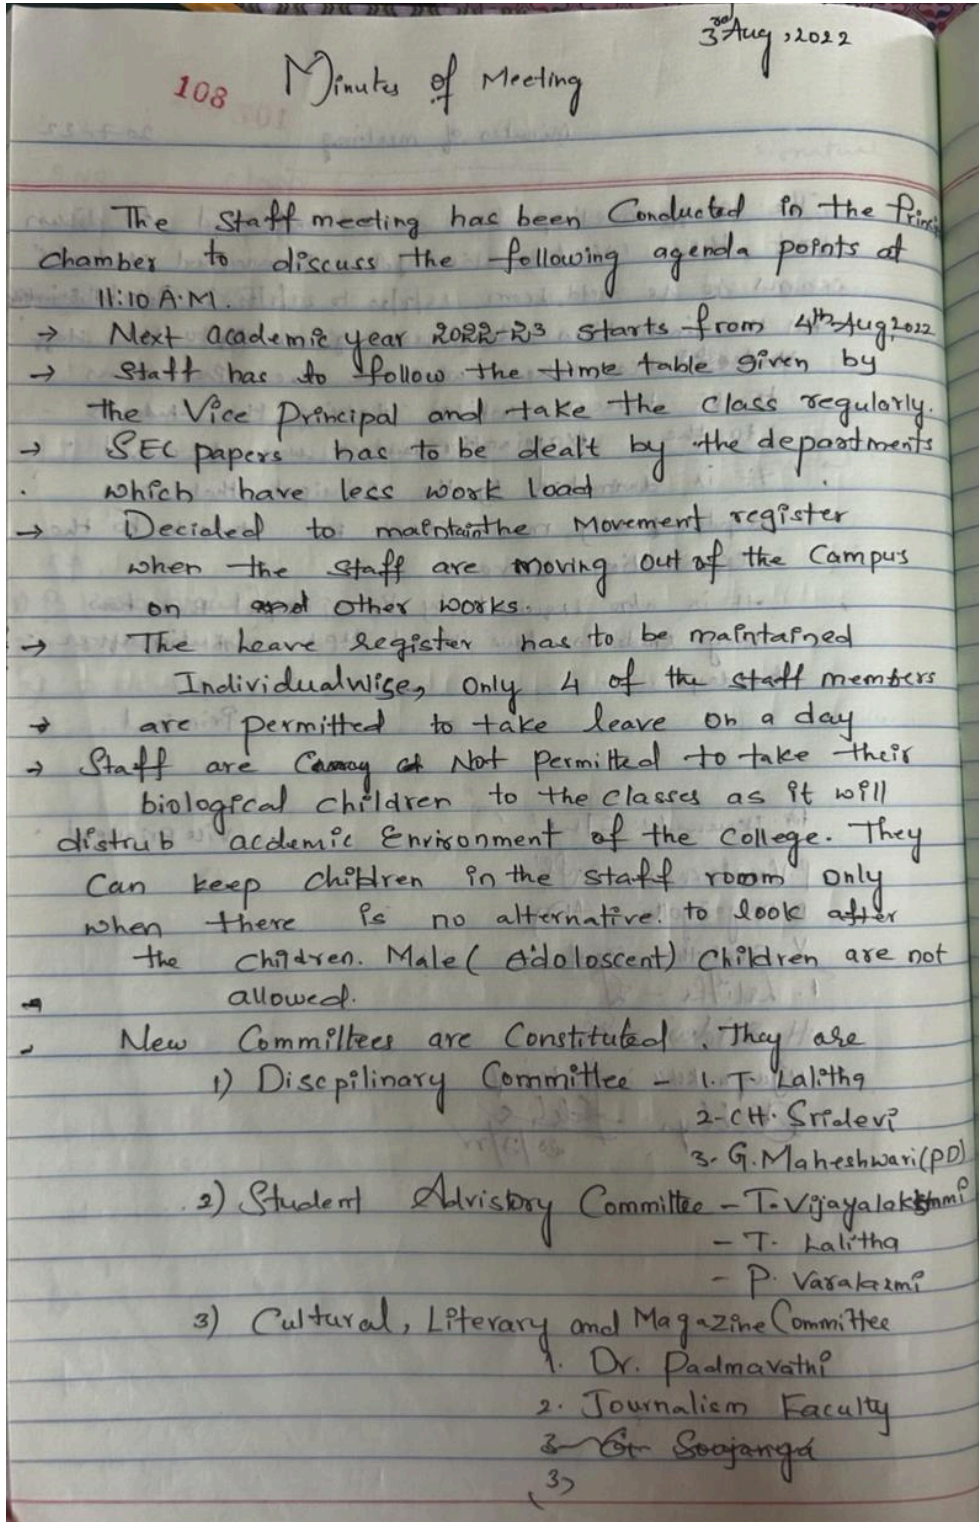 3rd Aug, 2022
108 Minutes of Meeting
The Staff meeting has been Conducted in the Princi
chamber to discuss the following agenda points at
11:10 A.M.
→ Next academic year 2022-23 starts from 4th Aug, 2022
→ Staff has to follow the time table given by
the Vice Principal and take the class regularly.
→ SEC papers has to be dealt by the departments
which have less work load
→ Decided to maintain the Movement register
when the staff are moving out of the Campus
on other works.
→ The Leave register has to be maintained
Individualwise, Only 4 of the staff members
→ are permitted to take leave on a day
→ Staff are Not permitted to take their
biological children to the classes as it will
distrub acdemic Environment of the College. They
Can keep children in the staff room only
when there is no alternative. to look after
the children. Male (Adoloscent) Children are not
allowed.
New Committees are Constituted. They are
1) Discpilinary Committee - 1. T. Lalitha
2-CH. Sridevi
3. G. Maheshwari (PD)
2) Student Advistory Committee - T. Vijayalakshmi
- T. Lalitha
- P. Varalaxmi
3) Cultural, Literary and Magazine Committee
1. Dr. Padmavathi
2. Journalism Faculty
3
(3)